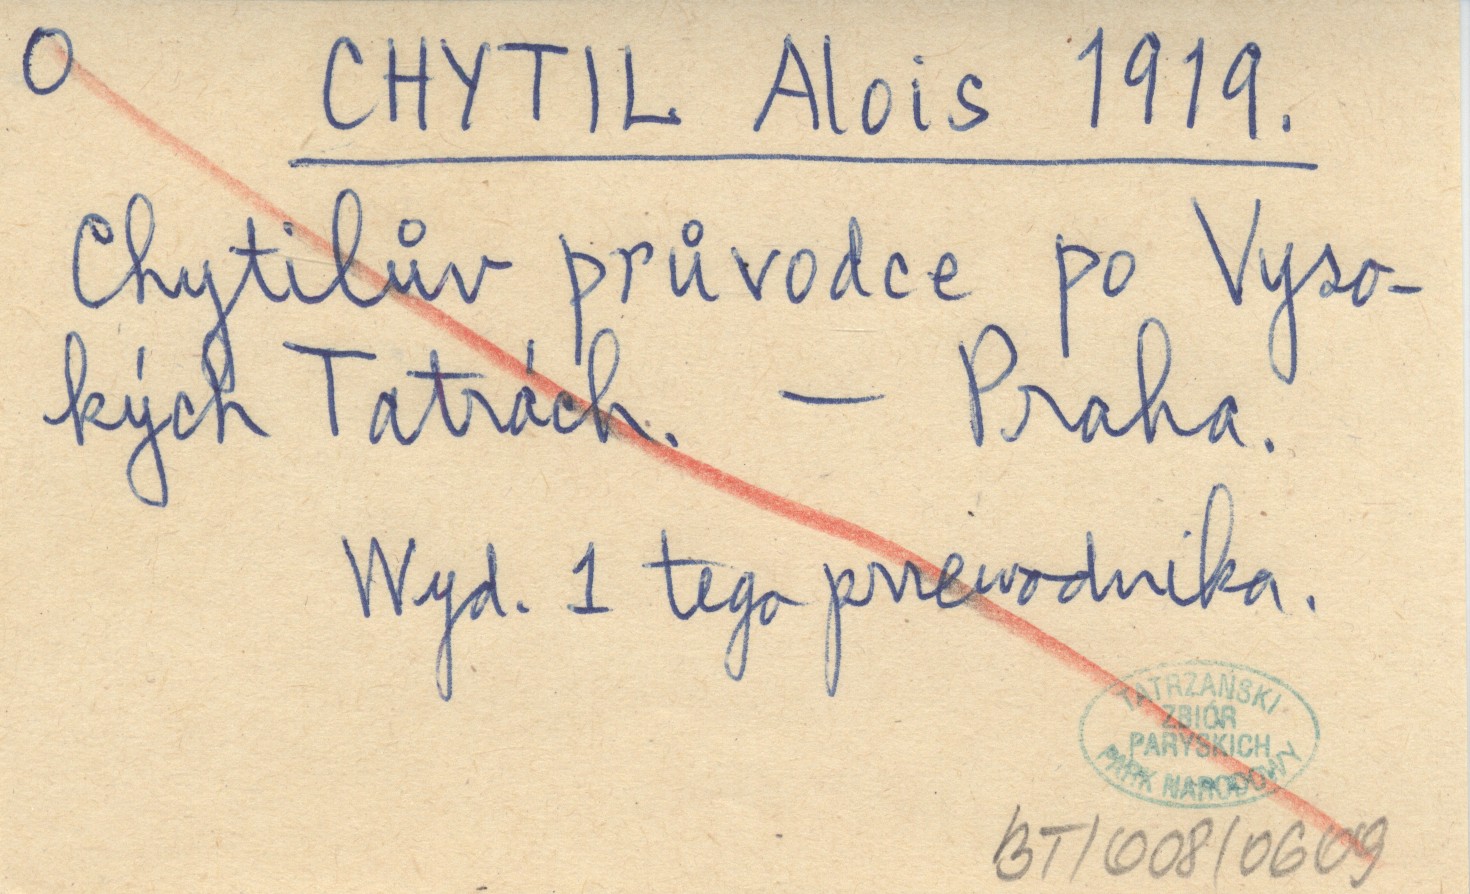 O
CHYTIL Alois 1919.
Chytilův průvodce po Vyso-
kých Tatrách. — Praha.
Wyd. 1 tego przewodnika.
TATRZAŃSKI
ZBIÓR
PARYSKICH
PARK NARODOWY
BT/008/0609